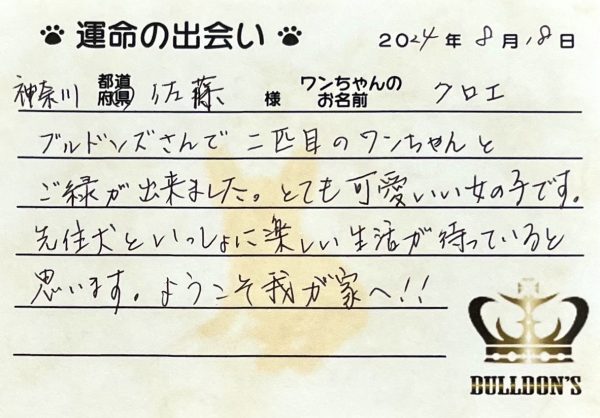 運命の出会い 2024年8月18日
神奈川 都道府県 佐藤 様 ワンちゃんのお名前 クロエ
ブルドンズさんで二匹目のワンちゃんと
ご縁が出来ました。とても可愛いい女の子です。
先住犬といっしょに楽しい生活が待っていると
思います。ようこそ我が家へ!!
BULLDON'S